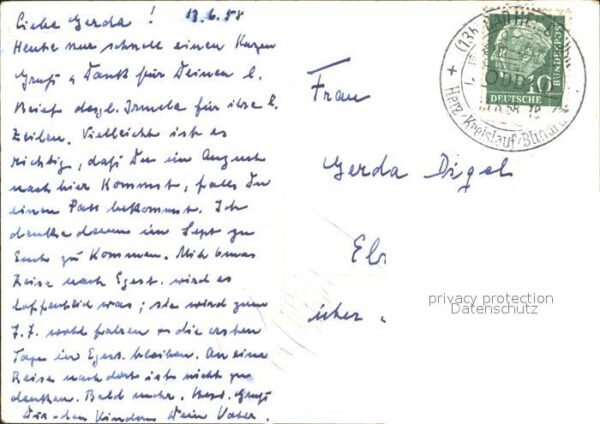 Liebe Gerda ! 13.6.58
Heute nur schnell einen Kurzen
Gruß u Dank für Deinen l.
Brief dazgl. Irmela für ihre l.
Zeilen. Vielleicht ist es
richtig, daß Du im August
nach hier kommst, falls Du
einen Pass bekommst. Ich
denke dann im Sept zu
Euch zu kommen. Mit
Reise nach Egest. wird es
hoffentlich was; sie wird zum
7.7. wohl fahren u die ersten
Tage in Egest. bleiben. An eine
Reise nach dort ist nicht zu
denken. Bald mehr. Herzl. Gruß
Dir den Kindern Dein Vater.
Frau
Gerda Digel
Eb
über
DEUTSCHE
BUNDESPOST
10
(13a) BAD
Herz-Kreislauf-
privacy protection
Datenschutz